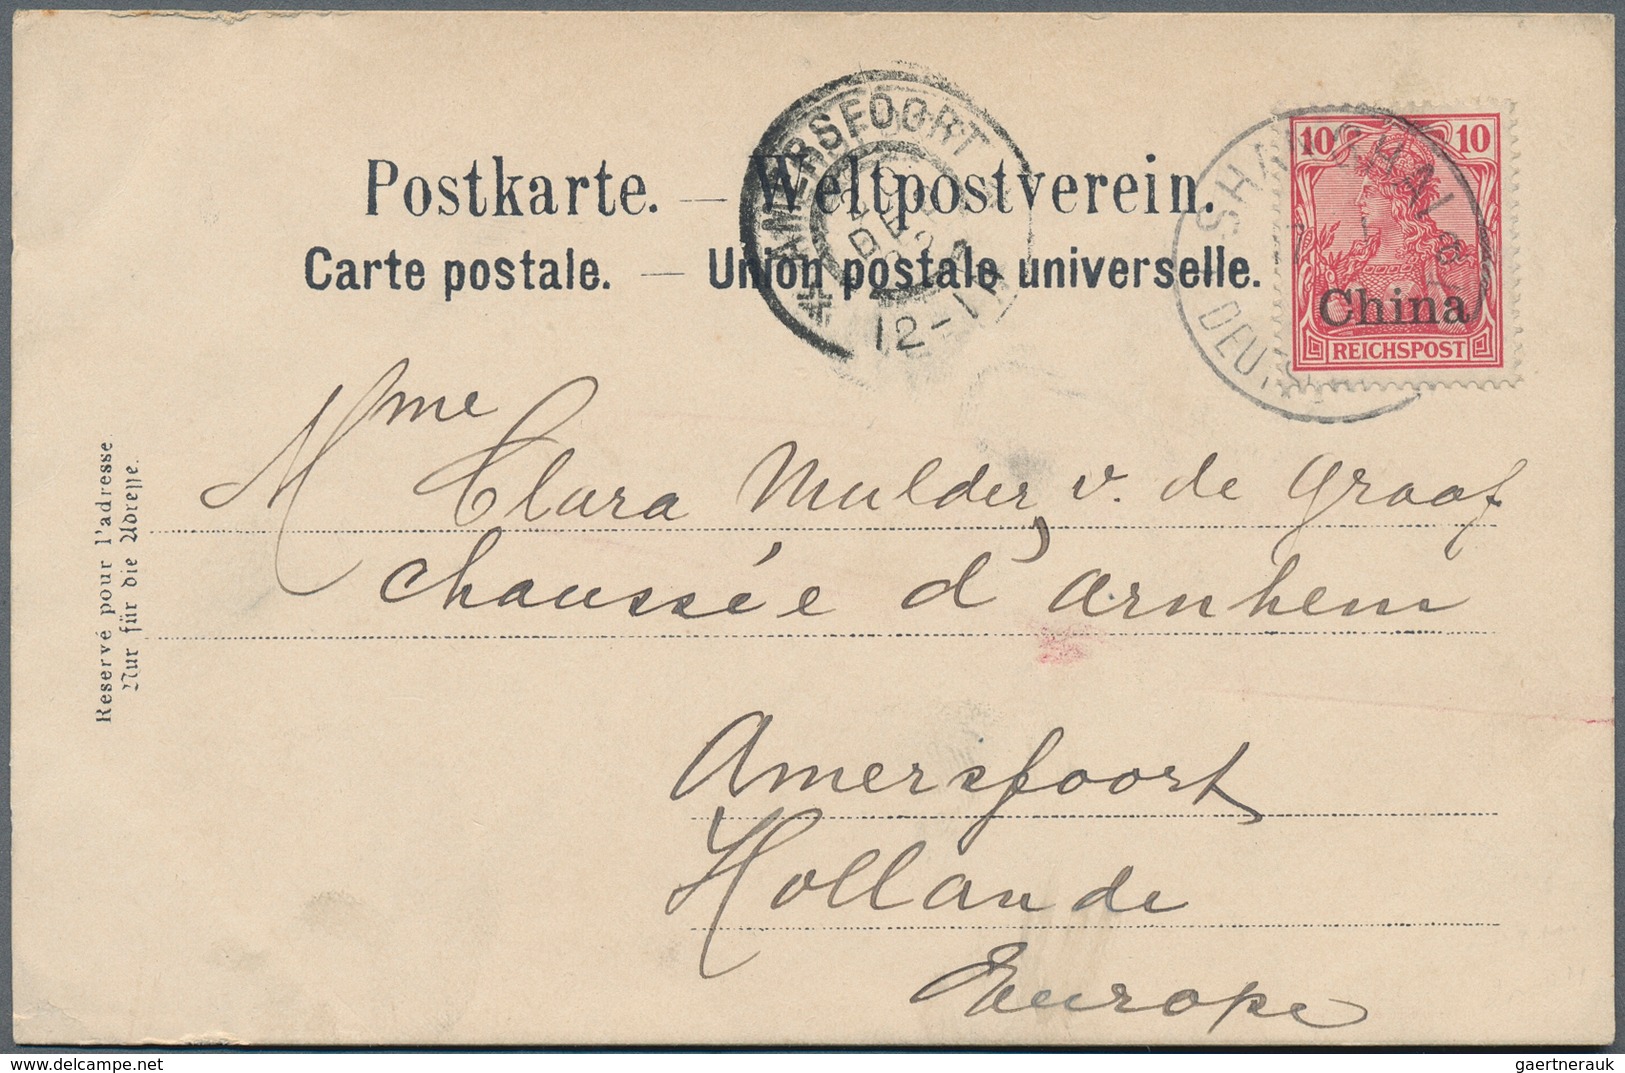 Postkarte. — Weltpostverein.
Carte postale. — Union postale universelle.
AMERSFOORT
DEC
12-1 N
SHANGHAI
a
DEUTSCHE
10 10
China
REICHSPOST
Mme Clara Mulder, v. de Graaf
chaussée d'Arnhem
Amersfoort
Hollande
Europe
Reservé pour l'adresse
Nur für die Adresse.
www.delcampe.net
gaertnerauk